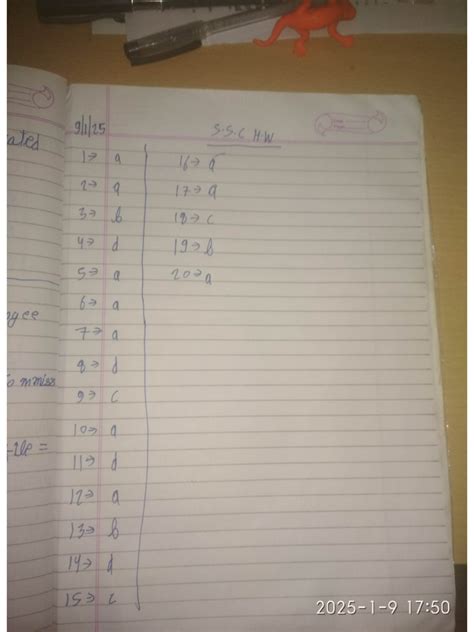 9/1/25
S.S.C H.W
1→ a
2→ a
3→ b
4→ d
5→ a
6→ a
7→ a
8→ d
9→ c
10→ a
11→ d
12→ a
13→ b
14→ d
15→ c
16→ a
17→ a
18→ c
19→ b
20→ a
ated
ngee
2025-1-9 17:50